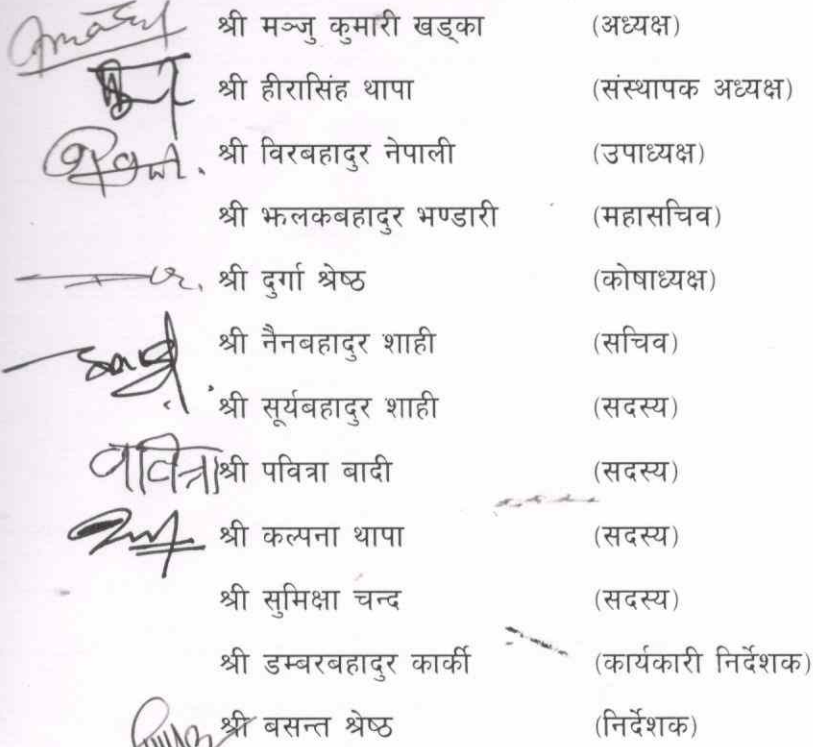 श्री मञ्जु कुमारी खड्का (अध्यक्ष)
श्री हीरासिंह थापा (संस्थापक अध्यक्ष)
श्री विरबहादुर नेपाली (उपाध्यक्ष)
श्री झलकबहादुर भण्डारी (महासचिव)
श्री दुर्गा श्रेष्ठ (कोषाध्यक्ष)
श्री नैनबहादुर शाही (सचिव)
श्री सूर्यबहादुर शाही (सदस्य)
पवित्रा श्री पवित्रा बादी (सदस्य)
श्री कल्पना थापा (सदस्य)
श्री सुमिक्षा चन्द (सदस्य)
श्री डम्बरबहादुर कार्की (कार्यकारी निर्देशक)
श्री बसन्त श्रेष्ठ (निर्देशक)